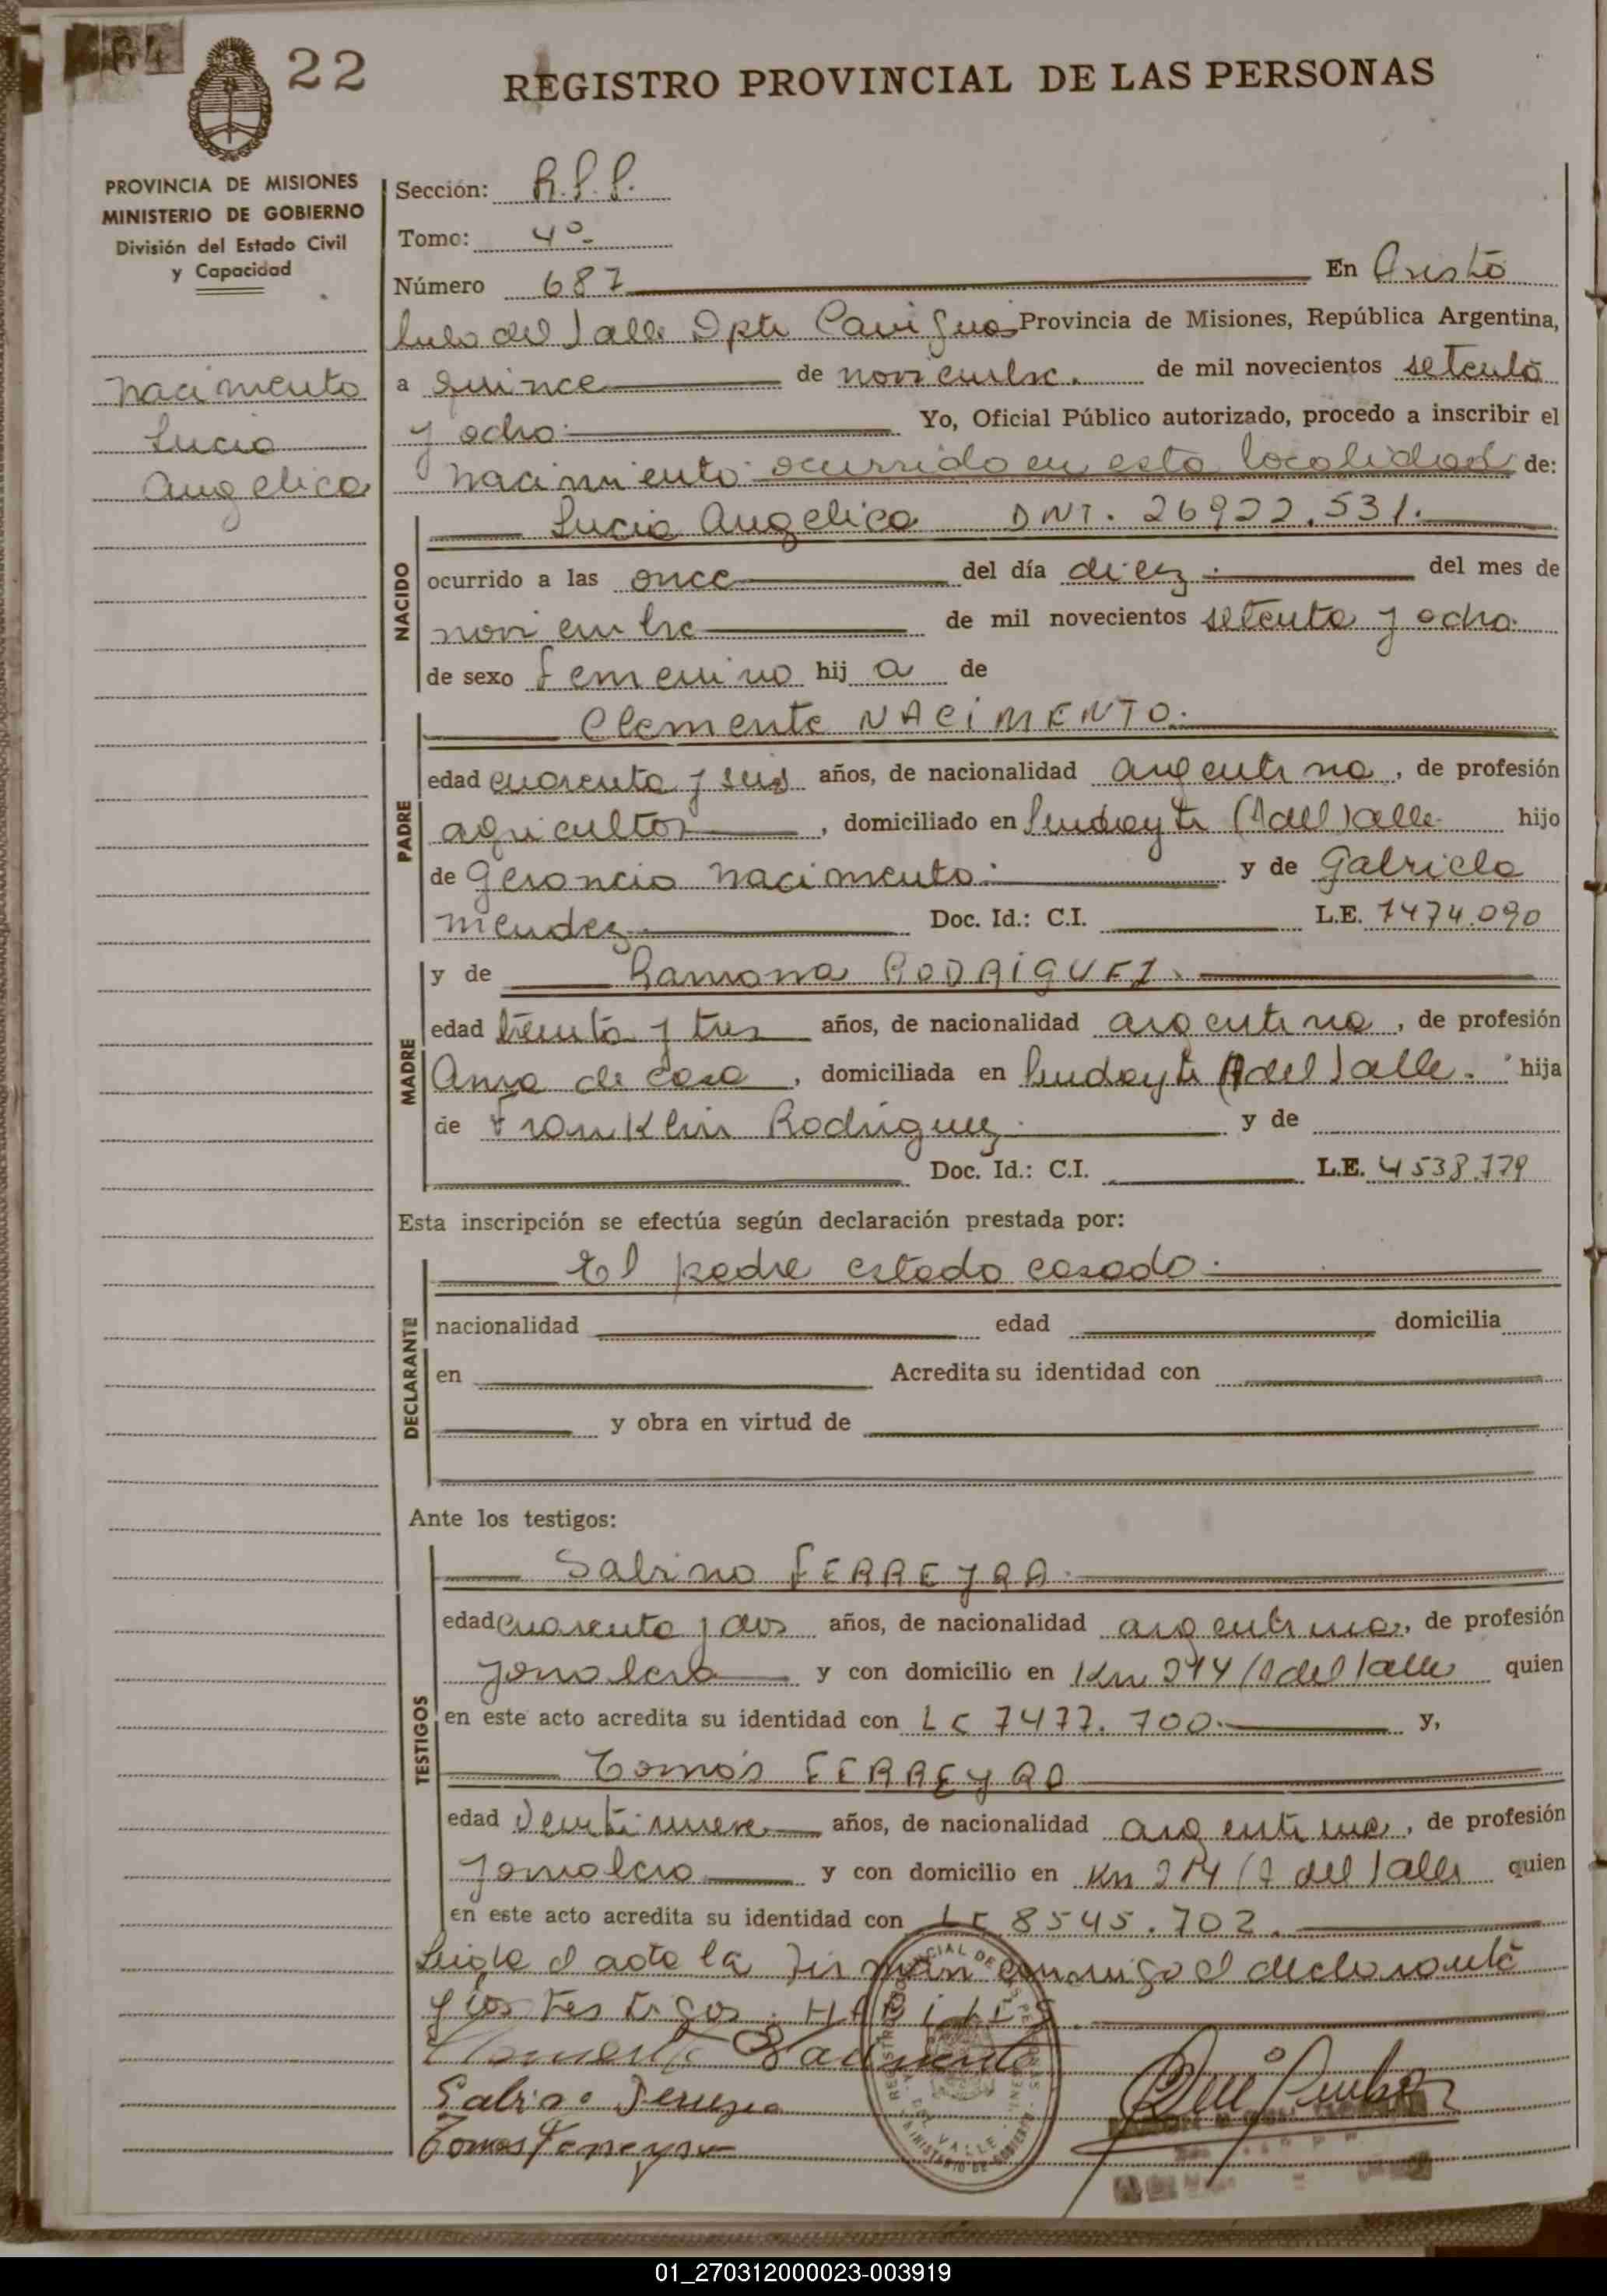 64 22
REGISTRO PROVINCIAL DE LAS PERSONAS
PROVINCIA DE MISIONES
MINISTERIO DE GOBIERNO
División del Estado Civil
y Capacidad
Nacimento
Lucia
Angelica
Sección: R.P.P.
Tomo: 4º
Número 687 En Aristó
bulo del Valle Dpto Cainguas Provincia de Misiones, República Argentina,
a quince de noviembre. de mil novecientos setenta
y ocho Yo, Oficial Público autorizado, procedo a inscribir el
nacimiento ocurrido en esta localidad de:
NACIDO
Lucia Angelica DNI. 26922.531.
ocurrido a las once del día diez del mes de
noviembre de mil novecientos setenta y ocho.
de sexo femenino hij a de
PADRE
Clemente NACIMENTO.
edad cuarenta y seis años, de nacionalidad argentina, de profesión
agricultor, domiciliado en Pindayti (A del Valle hijo
de Geroncio Nacimento y de Gabriela
Mendez Doc. Id.: C.I. L.E. 7474.090
MADRE
y de Ramona RODRIGUEZ.
edad treinta y tres años, de nacionalidad argentina, de profesión
Ama de casa, domiciliada en Pindayti A del Valle. hija
de Franklin Rodriguez y de
Doc. Id.: C.I. L.E. 4538.779
Esta inscripción se efectúa según declaración prestada por:
DECLARANTE
El padre estado casado.
nacionalidad edad domicilia
en Acredita su identidad con
y obra en virtud de
Ante los testigos:
TESTIGOS
Sabino FERREYRA.
edad cuarenta y dos años, de nacionalidad argentina, de profesión
Jornalero y con domicilio en Km 214 (A del Valle quien
en este acto acredita su identidad con LE 7477.700. y,
Tomás FERREYRA
edad Veintinueve años, de nacionalidad argentina, de profesión
Jornalero y con domicilio en Km 214 (A del Valle quien
en este acto acredita su identidad con LE 8545.702.
Leida el acta la firman conmigo el declarante
y los testigos. HABILES.
Clemente Nacimento
Sabino Ferreyra
Tomas Ferreyra
01_270312000023-003919